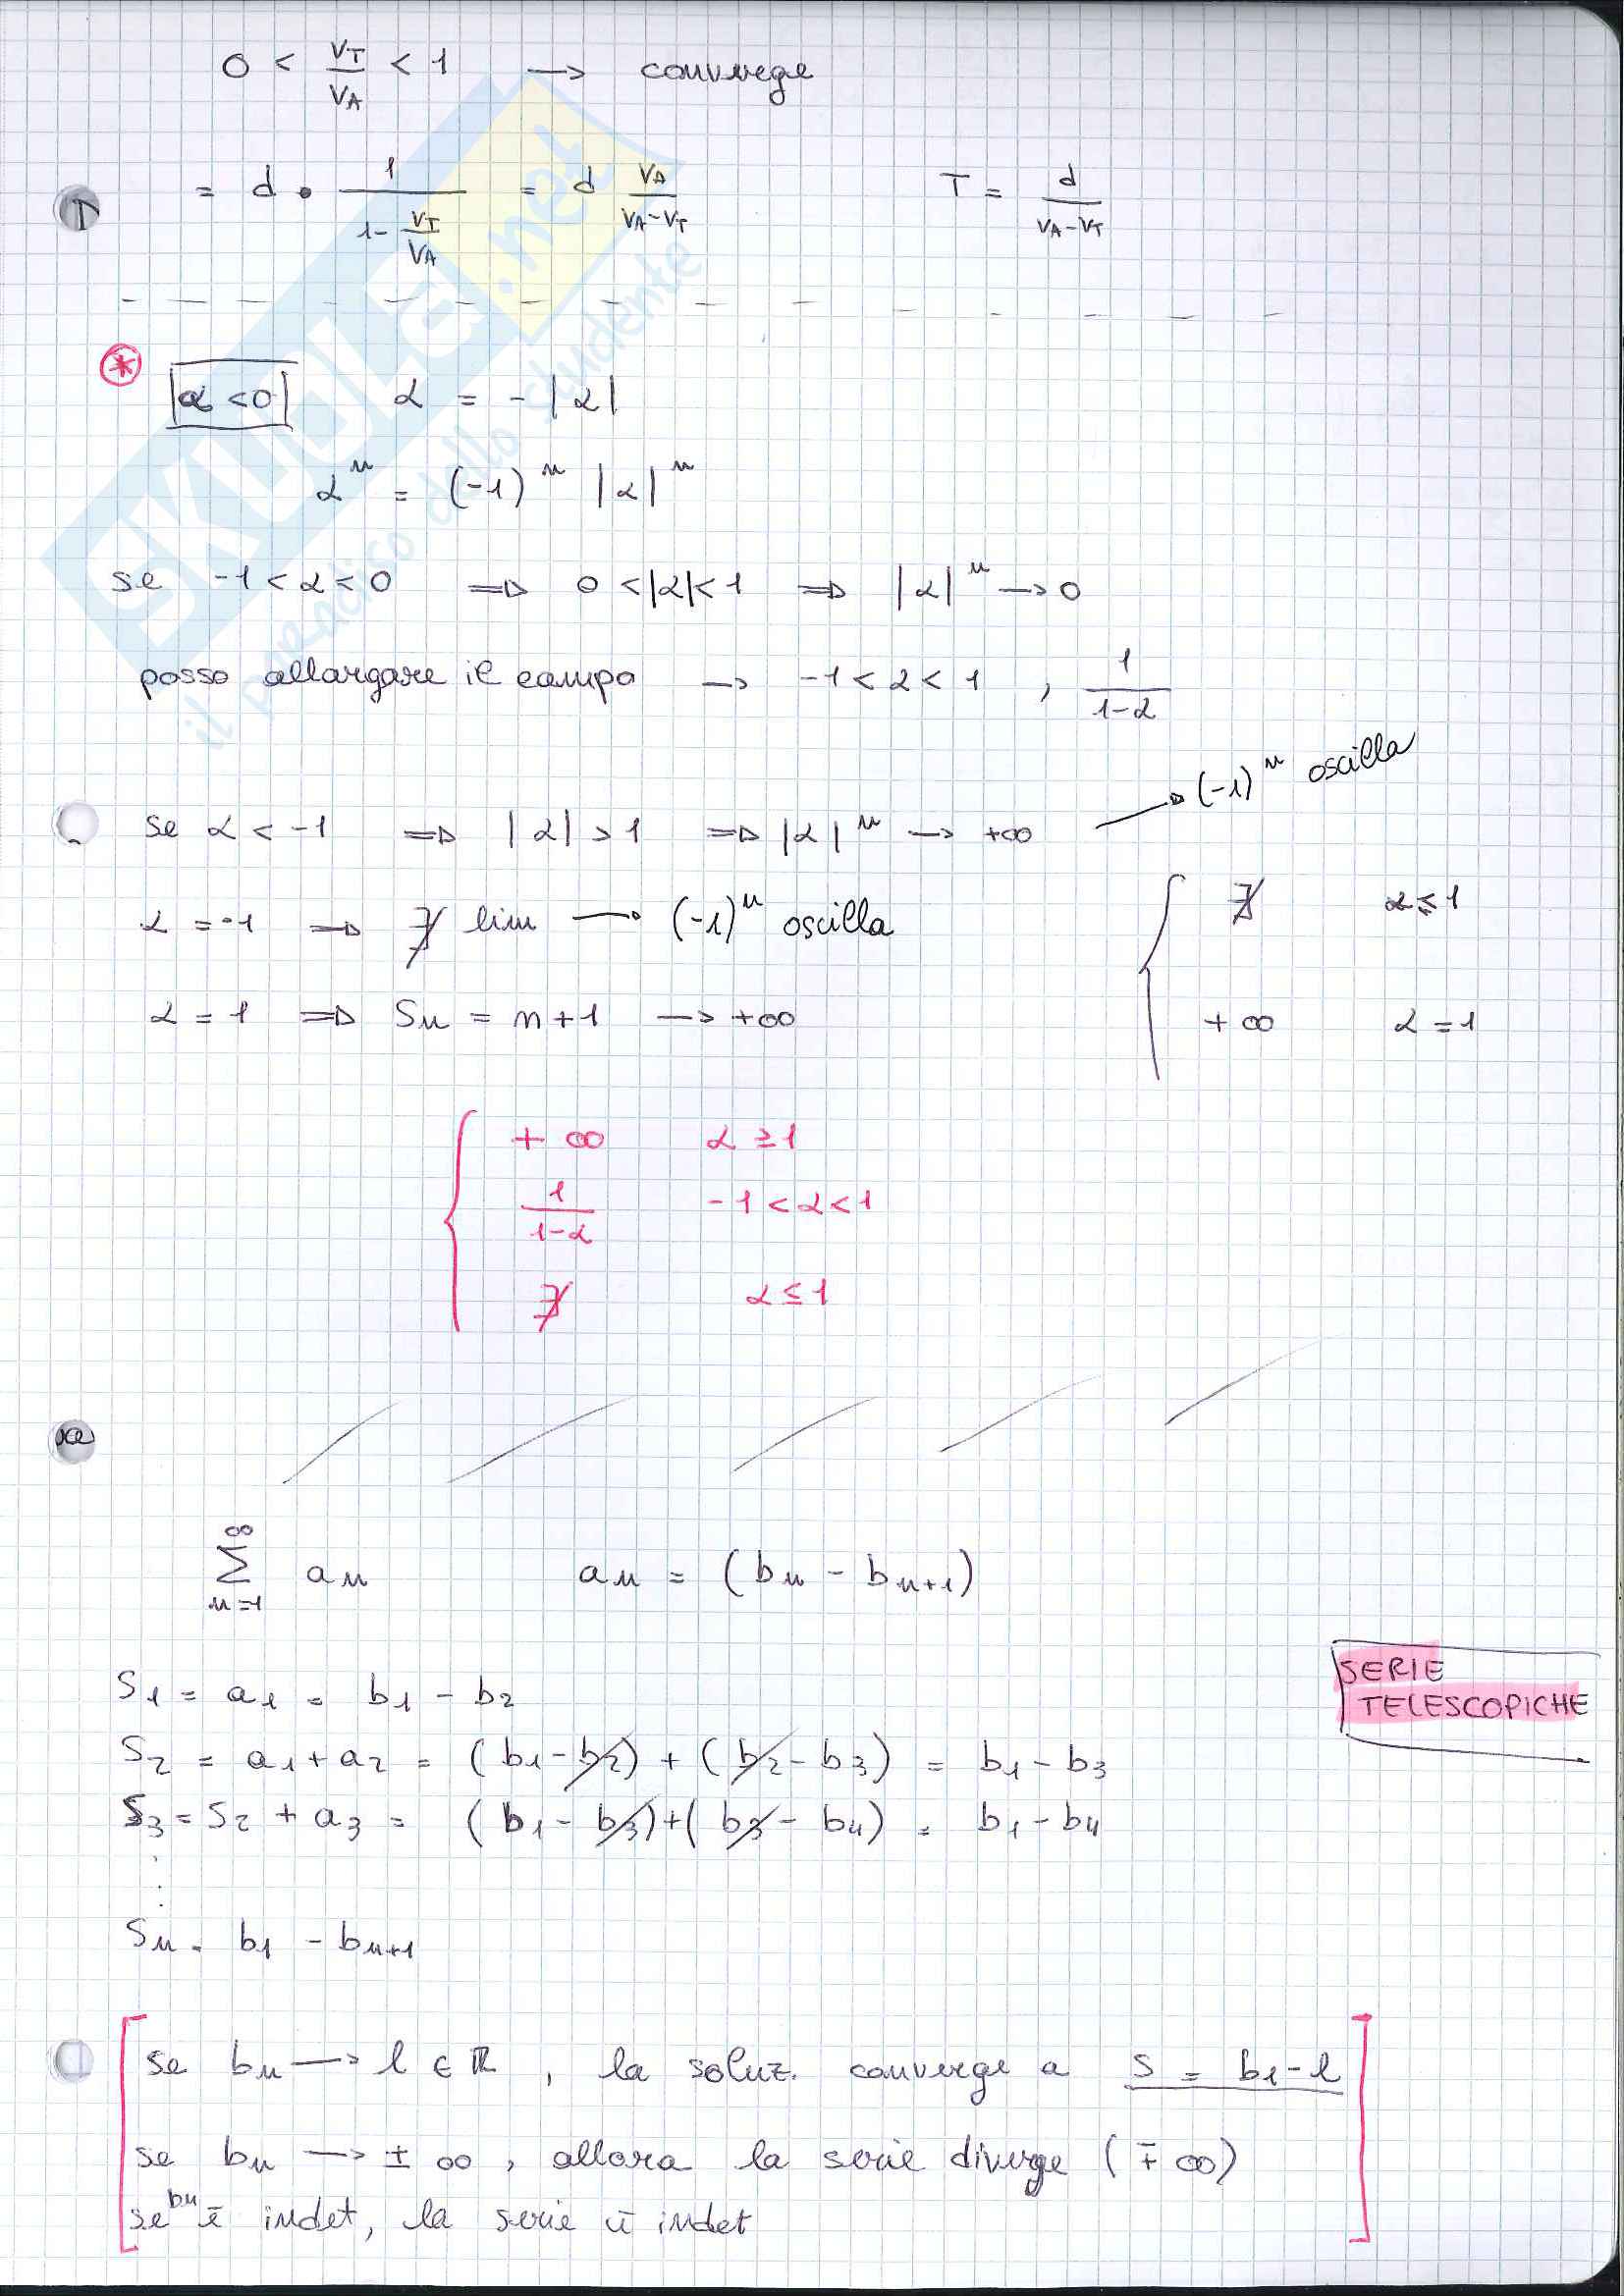 0 < V_T/V_A < 1 → converge
= d • 1/(1 - V_T/V_A) = d V_A/(V_A - V_T)    T = d/(V_A - V_T)
SKUOLA.net
il paradiso dello studente
⊛ α < 0    α = - |α|
α^n = (-1)^n |α|^n
se -1 < α < 0 ⇒ 0 < |α| < 1 ⇒ |α|^n → 0
posso allargare il campo → -1 < α < 1 , 1/(1-α)
se α < -1 ⇒ |α| > 1 ⇒ |α|^n → +∞ → (-1)^n oscilla
α = -1 ⇒ ∄ lim → (-1)^n oscilla
α = 1 ⇒ S_n = n+1 → +∞
{ ∄    α ≤ 1
+∞    α = 1
{ +∞    α ≥ 1
1/(1-α)    -1 < α < 1
∄    α ≤ 1
∞
Σ a_n    a_n = (b_n - b_{n+1})
n=1
SERIE
TELESCOPICHE
S_1 = a_1 = b_1 - b_2
S_2 = a_1 + a_2 = (b_1 - b_2) + (b_2 - b_3) = b_1 - b_3
S_3 = S_2 + a_3 = (b_1 - b_3) + (b_3 - b_4) = b_1 - b_4
⋮
S_n = b_1 - b_{n+1}
[ se b_n → l ∈ ℝ , la soluz. converge a S = b_1 - l ]
se b_n → ± ∞ , allora la serie diverge (∓ ∞)
se b_n è indet, la serie è indet